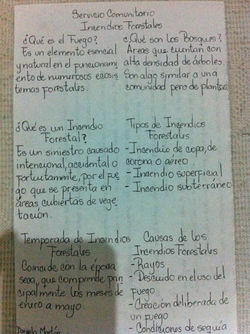 Servicio Comunitario
Incendios Forestales
¿Qué es el Fuego?
Es un elemento esencial
y natural en el funcionami
ento de numerosos ecosis
temas forestales.
¿Qué son los Bosques?
Áreas que cuentan con
alta densidad de árboles.
Son algo similar a una
comunidad pero de plantas
¿Qué es un Incendio
Forestal?
Es un siniestro causado
intencional, accidental o
fortuitamente, por el fue
go que se presenta en
áreas cubiertas de vege
tación.
Tipos de Incendios
Forestales
-Incendio de copa, de
corona o aéreo
- Incendio superficial
- Incendio subterráneo
Temporada de Incendios
Forestales
Coincide con la época
seca, que comprende prin
cipalmente los meses de
enero a mayo
Causas de los
Incendios Forestales
-Rayos
- Descuido en el uso del
fuego
- Creación deliberada de
un fuego
- Condiciones de sequía